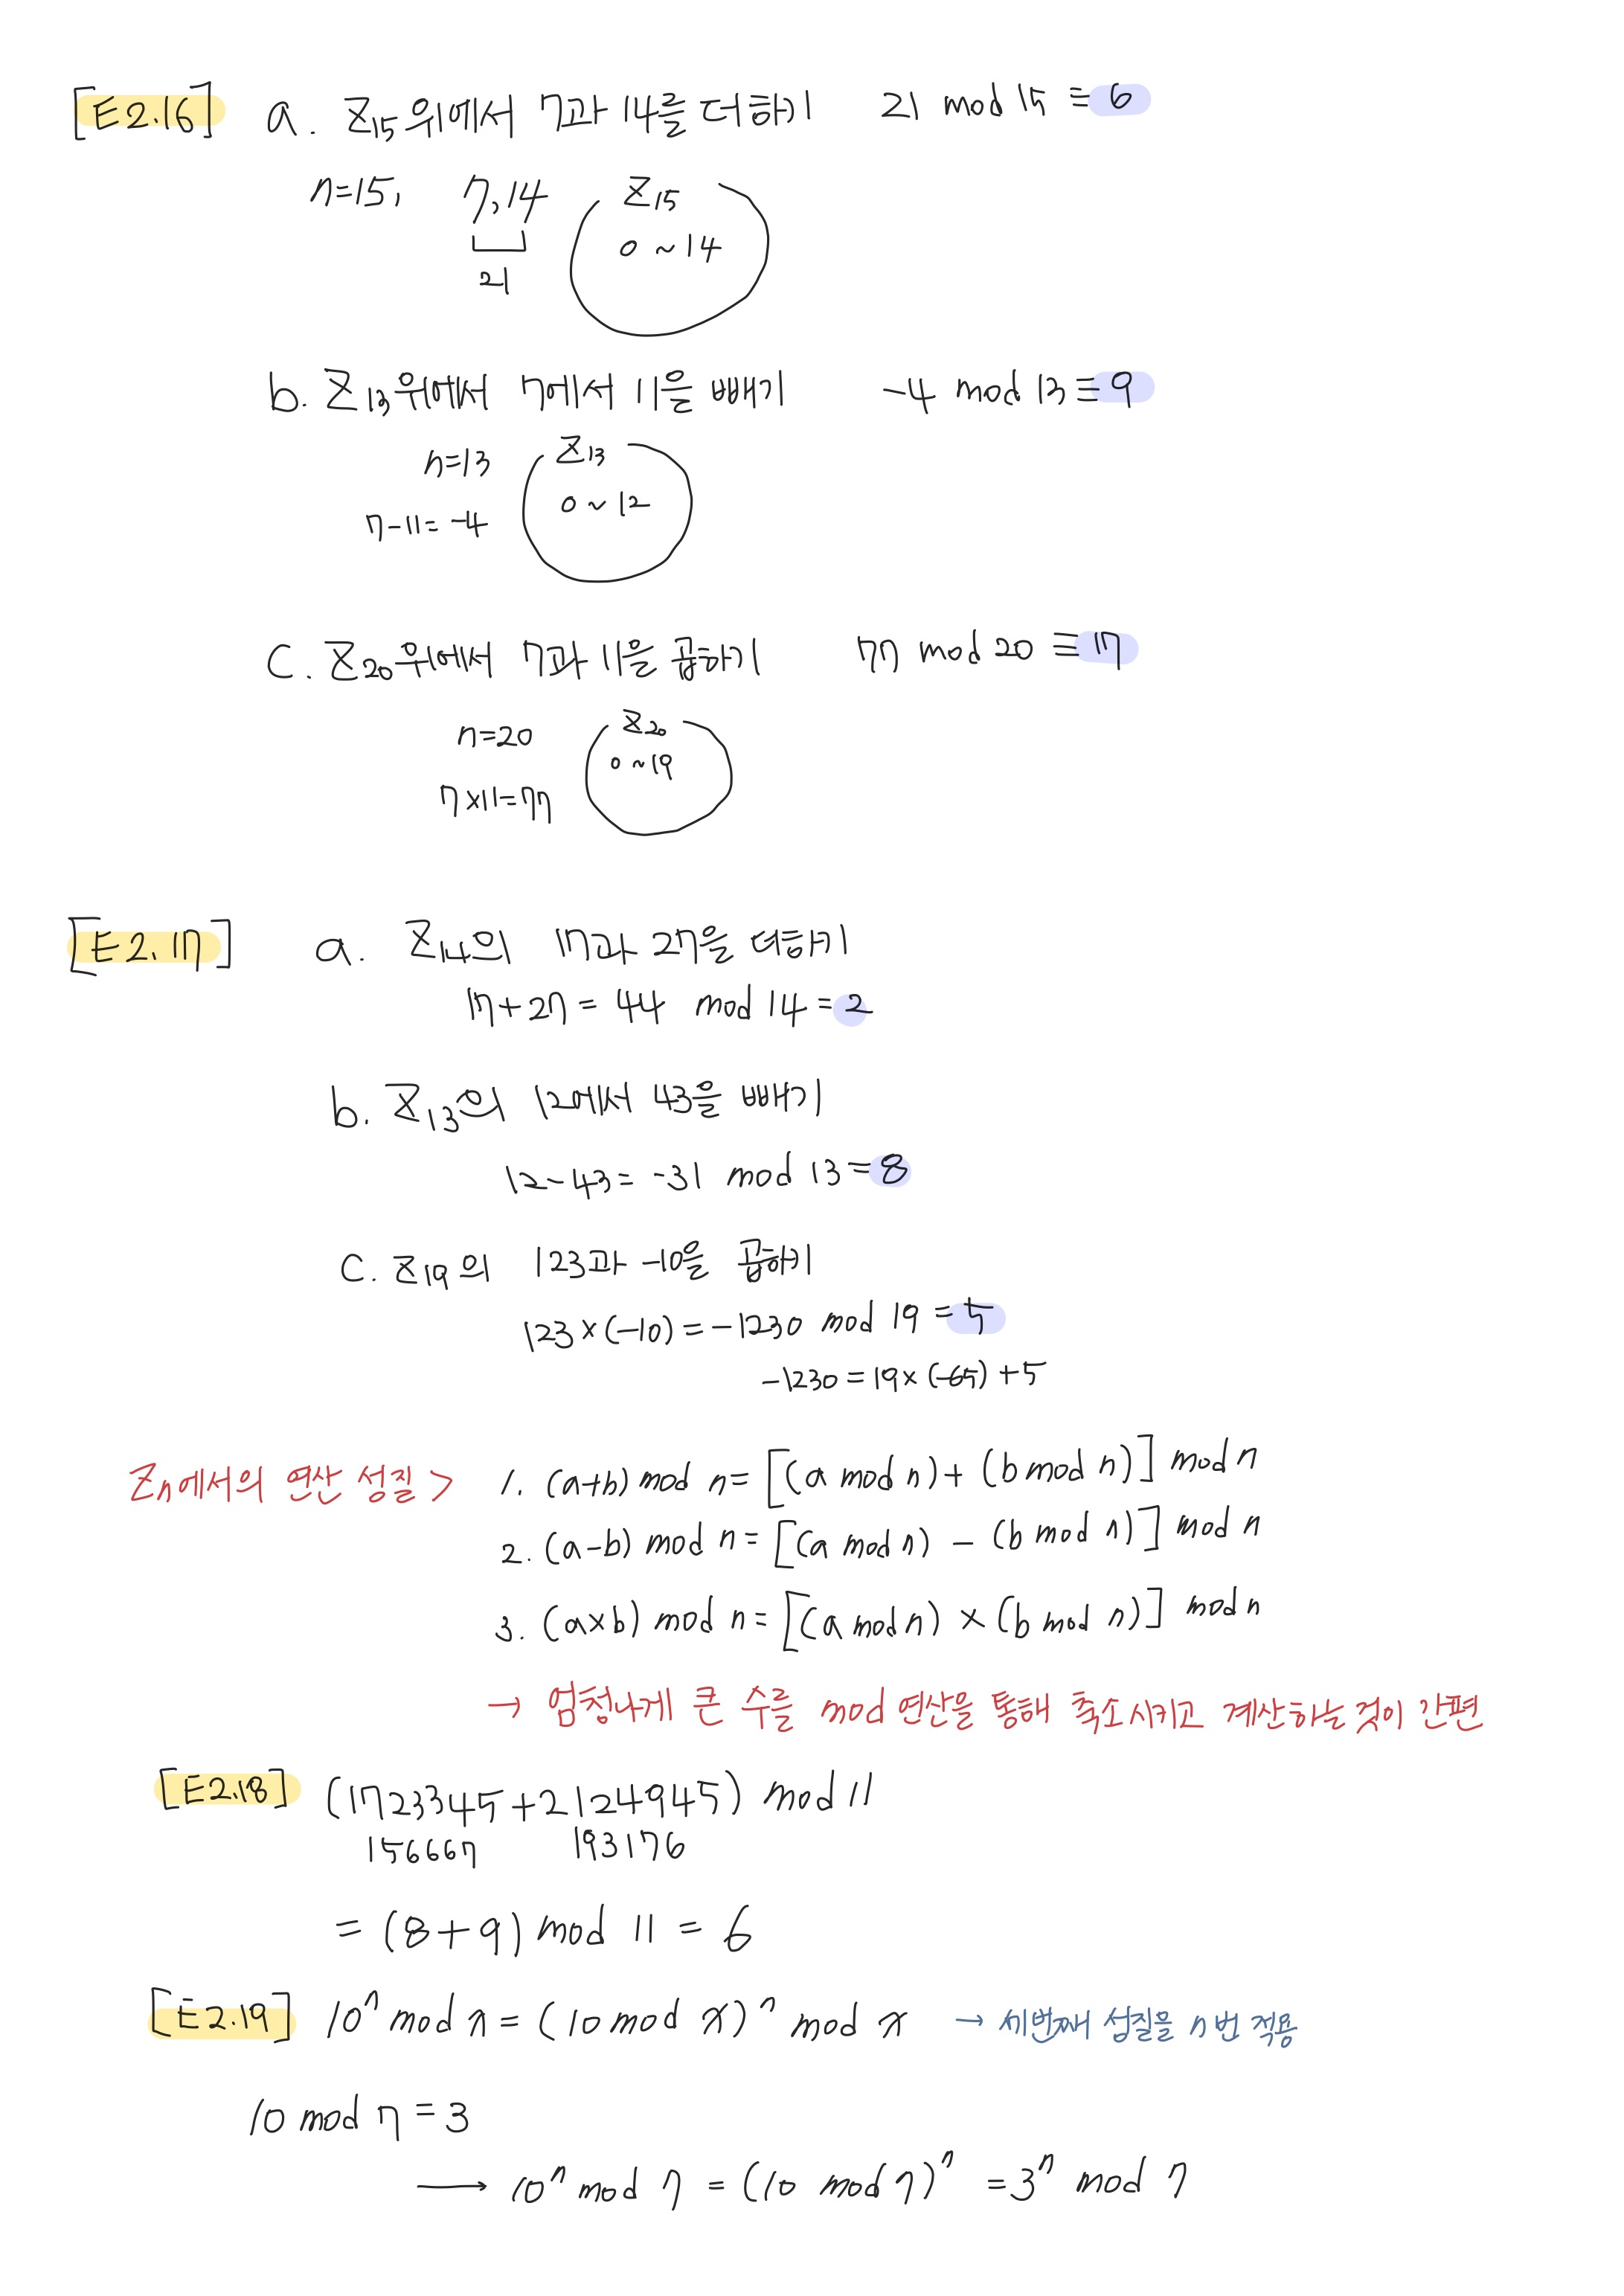 [E2.16] a. Z15위에서 7과 14를 더하기 21 mod 15 ≡ 6
n=15, 7,14 Z15
0 ~ 14
21
b. Z13위에서 7에서 11을 빼기 -4 mod 13 ≡ 9
n=13 Z13
0 ~ 12
7-11= -4
c. Z20위에서 7과 11을 곱하기 77 mod 20 ≡ 17
n=20 Z20
0 ~ 19
7×11=77
[E2.17] a. Z14의 17과 27을 더하기
17+27 = 44 mod 14 = 2
b. Z13의 12에서 43을 빼기
12-43= -31 mod 13 = 8
c. Z19의 123과 -10을 곱하기
123×(-10) = -1230 mod 19 = 5
-1230 = 19×(-65) +5
Zn에서의 연산 성질 > 1. (a+b) mod n= [(a mod n)+ (b mod n)] mod n
2. (a-b) mod n= [(a mod n) - (b mod n)] mod n
3. (a×b) mod n= [(a mod n) × (b mod n)] mod n
→ 엄청나게 큰 수를 mod 연산을 통해 축소시키고 계산하는 것이 간편
[E2.18] (1723345+2124945) mod 11
156667 193176
= (8+9) mod 11 = 6
[E2.19] 10ⁿ mod x = (10 mod x)ⁿ mod x → 세번째 성질을 n번 적용
10 mod 7 = 3
→ 10ⁿ mod 7 = (10 mod 7)ⁿ = 3ⁿ mod 7